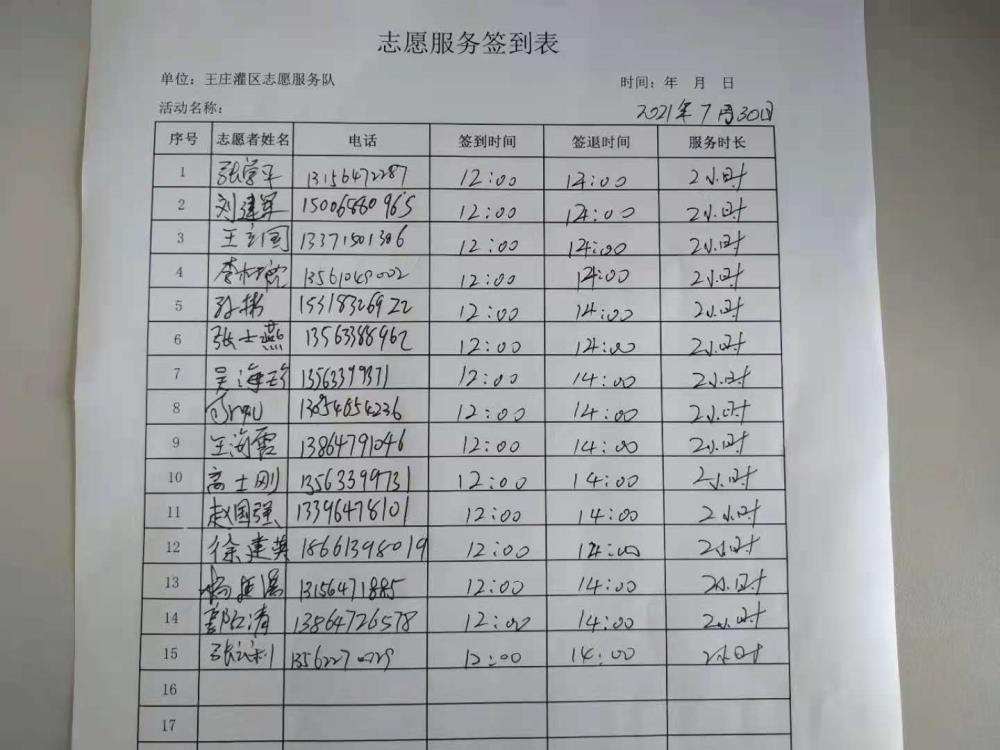 志愿服务签到表
单位：王庄灌区志愿服务队 时间：年 月 日
活动名称： 2021年7月30日
序号 志愿者姓名 电话 签到时间 签退时间 服务时长
1 张学平 13156472287 12:00 14:00 2小时
2 刘建军 15006880965 12:00 14:00 2小时
3 王立国 13371501306 12:00 14:00 2小时
4 12:00 14:00 2小时
5 孙彬 15318326922 12:00 14:00 2小时
6 张士燕 13563388962 12:00 14:00 2小时
7 吴海珍 13563399371 12:00 14:00 2小时
8 13854654236 12:00 14:00 2小时
9 王海霞 13864791046 12:00 14:00 2小时
10 高士刚 13563399731 12:00 14:00 2小时
11 赵国强 13396478101 12:00 14:00 2小时
12 徐建英 18661398019 12:00 14:00 2小时
13 13156471885 12:00 14:00 2小时
14 13864726578 12:00 14:00 2小时
15 12:00 14:00 2小时
16
17